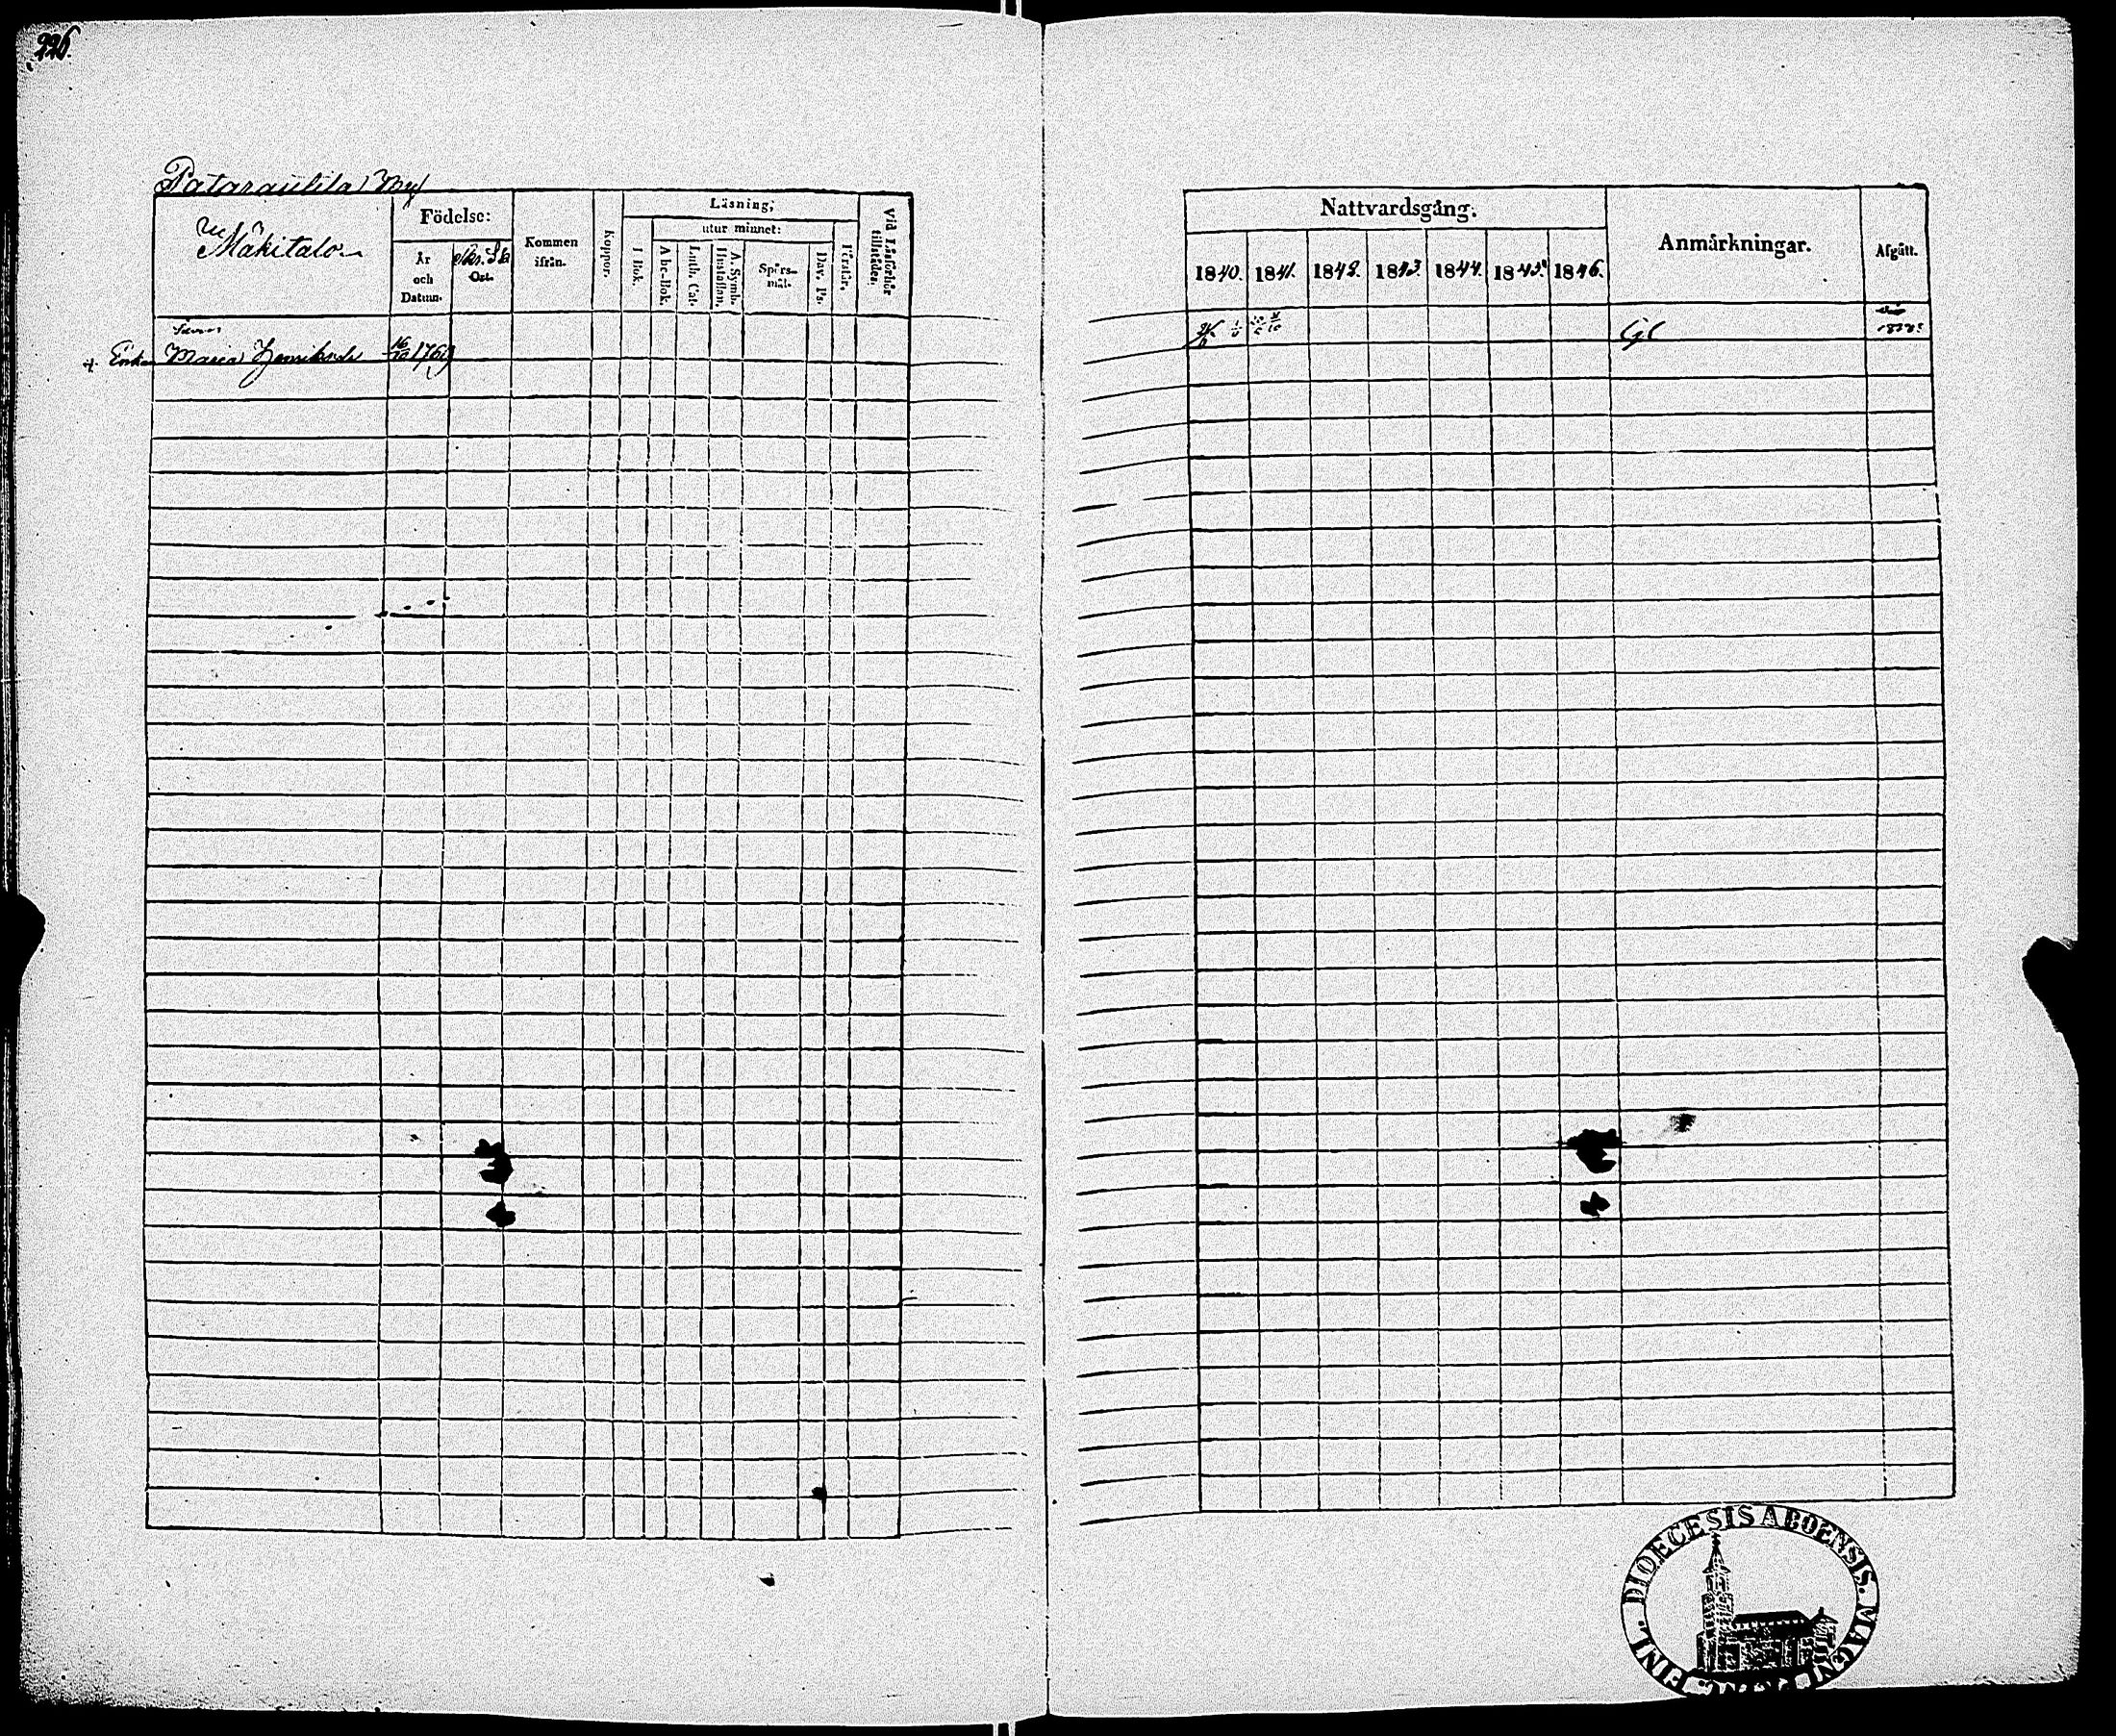 226.
Pataraulila By
Mäkitalo
Födelse:
År
och
Datum.
Ort.
Kommen
ifrån.
Koppor.
Läsning;
I Bok.
utur minnet:
Abc-Bok.
Luth. Cat.
A. Symb.
Hustaflan.
Spörs-
mål.
Dav. Ps.
Förstår.
Vid Läsförhör
tillstädes.
Enk. Maria Henriksdr 16/10 1769
Nattvardsgång.
1840. 1841. 1842. 1843. 1844. 1845. 1846.
Anmärkningar.
Afgått.
DIOECESIS ABOENSIS. MAGNI FINL.